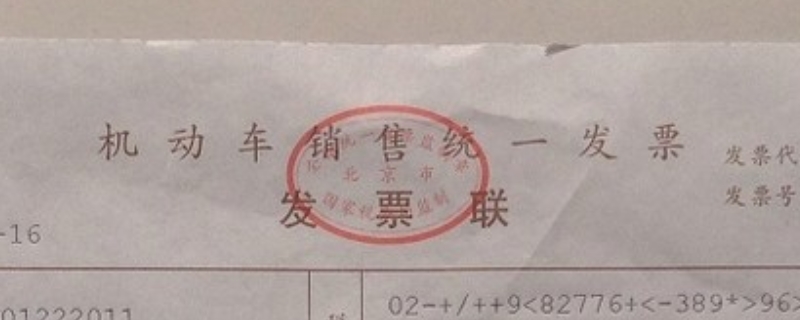 机动车销售统一发票
发票代
北京市
国家税务局监制
发票号
发票联
-16
01222011
02-+/++9<82776+<-389*>96>